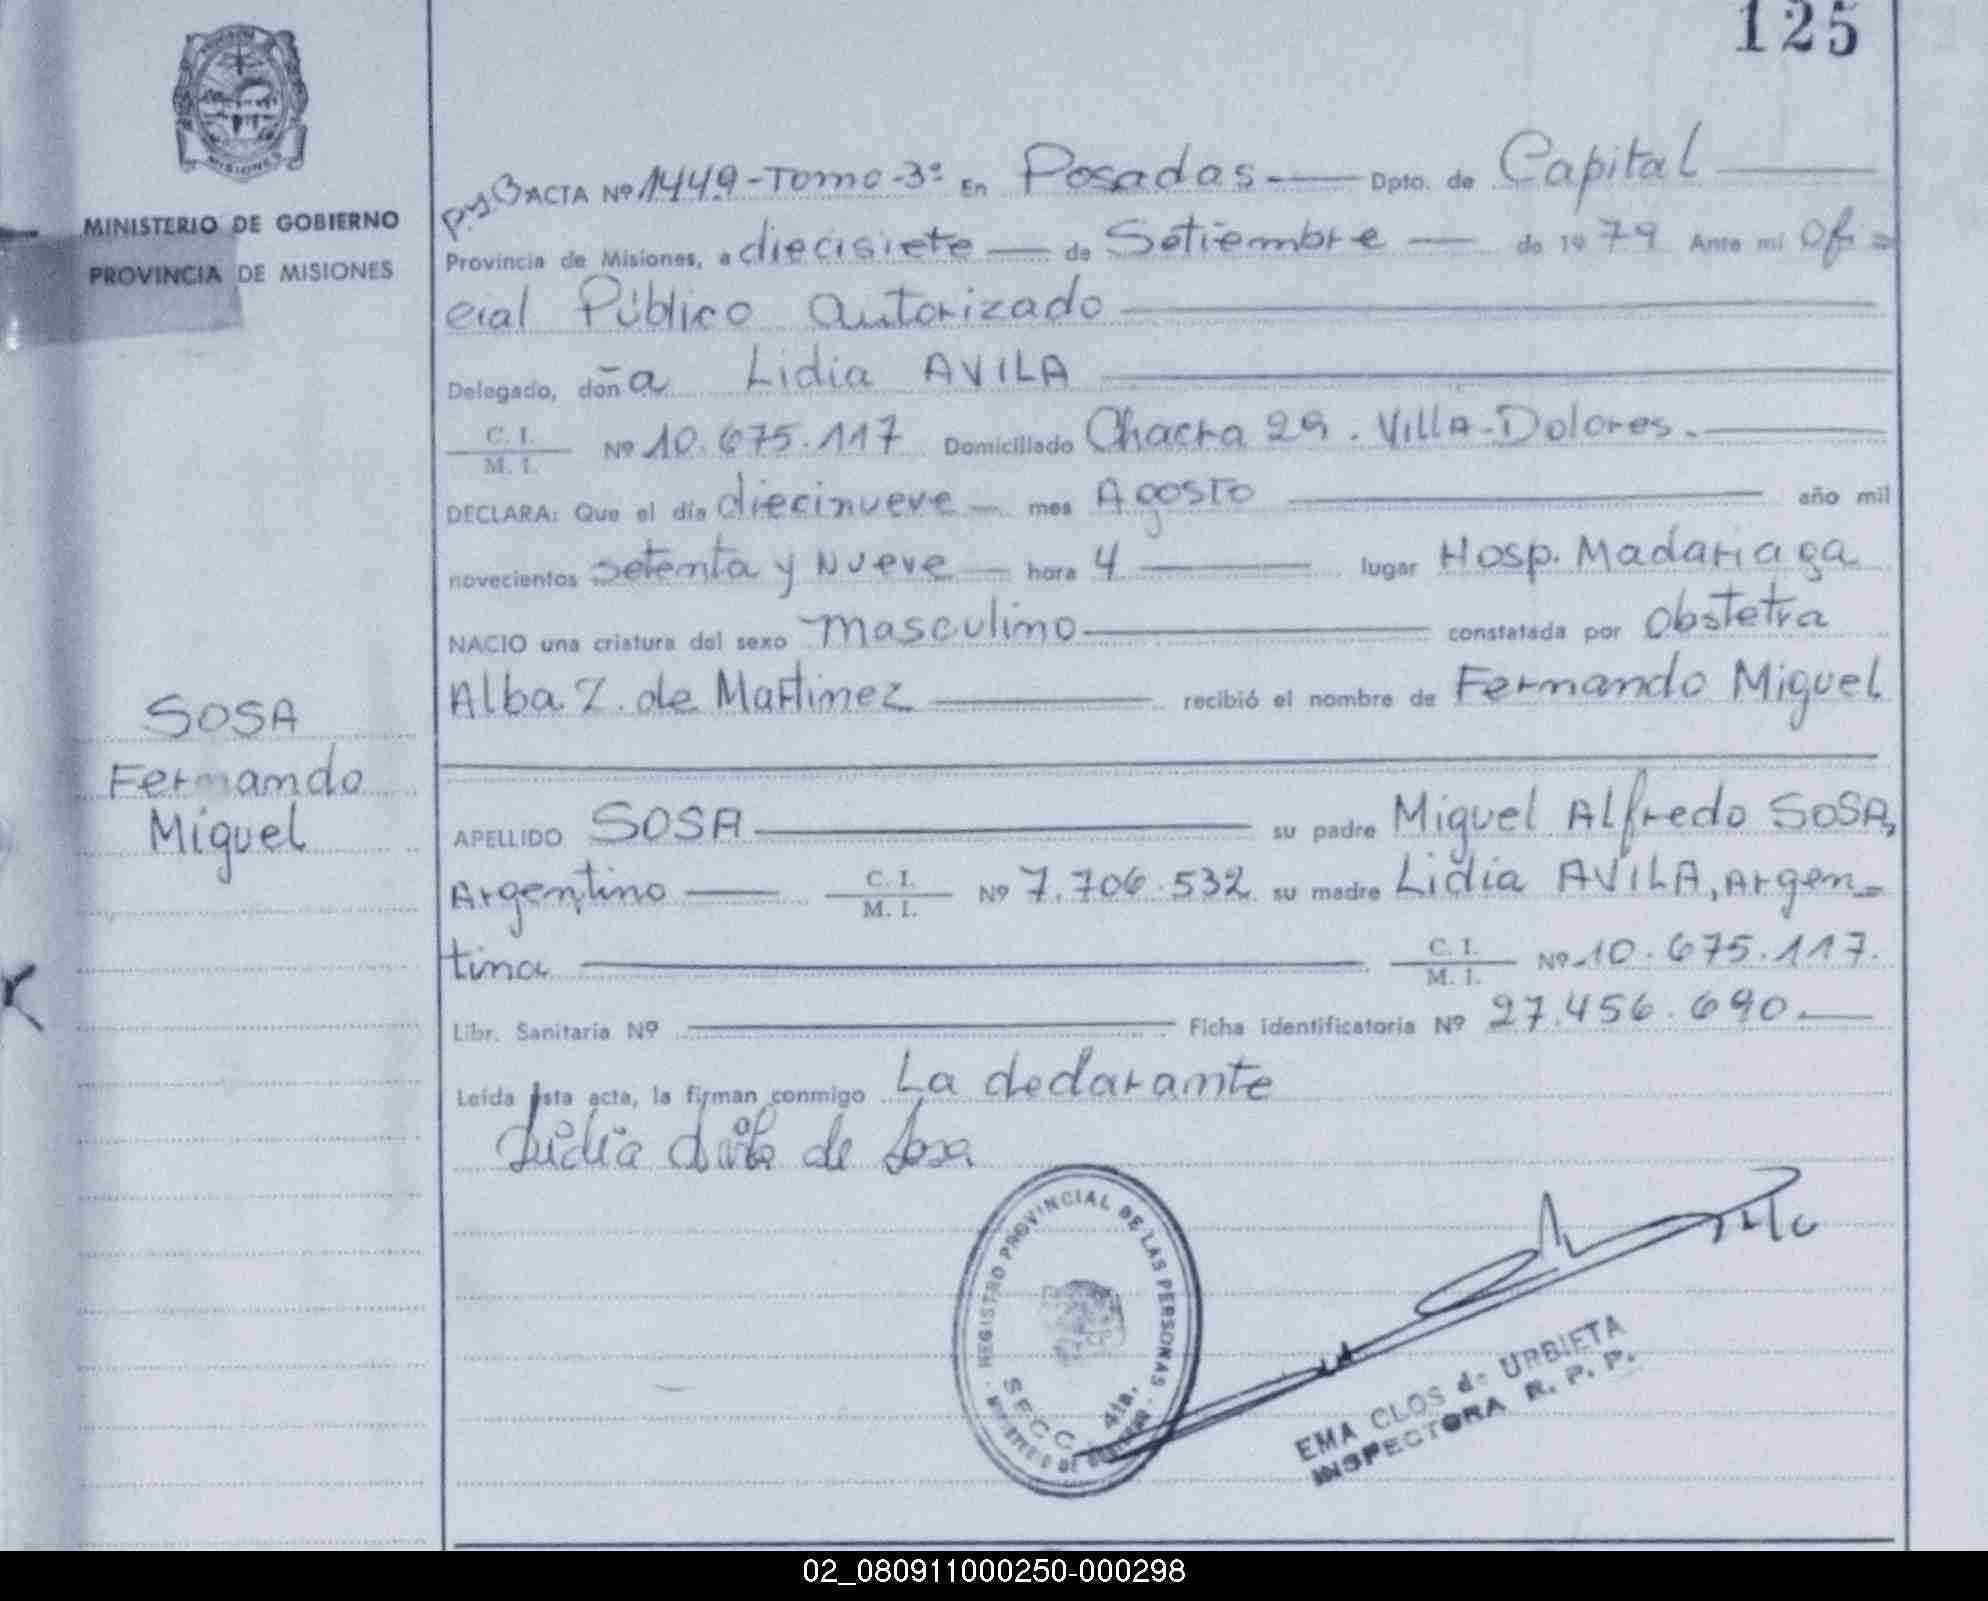 125
MISIONES
MINISTERIO DE GOBIERNO
PROVINCIA DE MISIONES
SOSA
Fernando
Miguel
ACTA Nº 1449-Tomo-3º En Posadas Dpto. de Capital
Provincia de Misiones, a diecisiete de Setiembre de 1979 Ante mí Ofi=
cial Público Autorizado
Delegado, doña Lidia AVILA
C. I.
M. I. Nº 10.675.117 Domiciliado Chacra 29. Villa-Dolores.
DECLARA: Que el día diecinueve mes Agosto año mil
novecientos setenta y Nueve hora 4 lugar Hosp. Madariaga
NACIO una criatura del sexo masculino constatada por Obstetra
Alba Z. de Martinez recibió el nombre de Fernando Miguel
APELLIDO SOSA su padre Miguel Alfredo SOSA,
Argentino C. I.
M. I. Nº 7.706.532 su madre Lidia AVILA, Argen=
tina C. I.
M. I. Nº 10.675.117.
Libr. Sanitaria Nº Ficha identificatoria Nº 27.456.690.
Leída esta acta, la firman conmigo La declarante
Lidia Avila de Sosa
REGISTRO PROVINCIAL DE LAS PERSONAS
SECC. 4ta.
MINISTERIO DE GOBIERNO
EMA CLOS de URBIETA
INSPECTORA R. P. P.
02_080911000250-000298